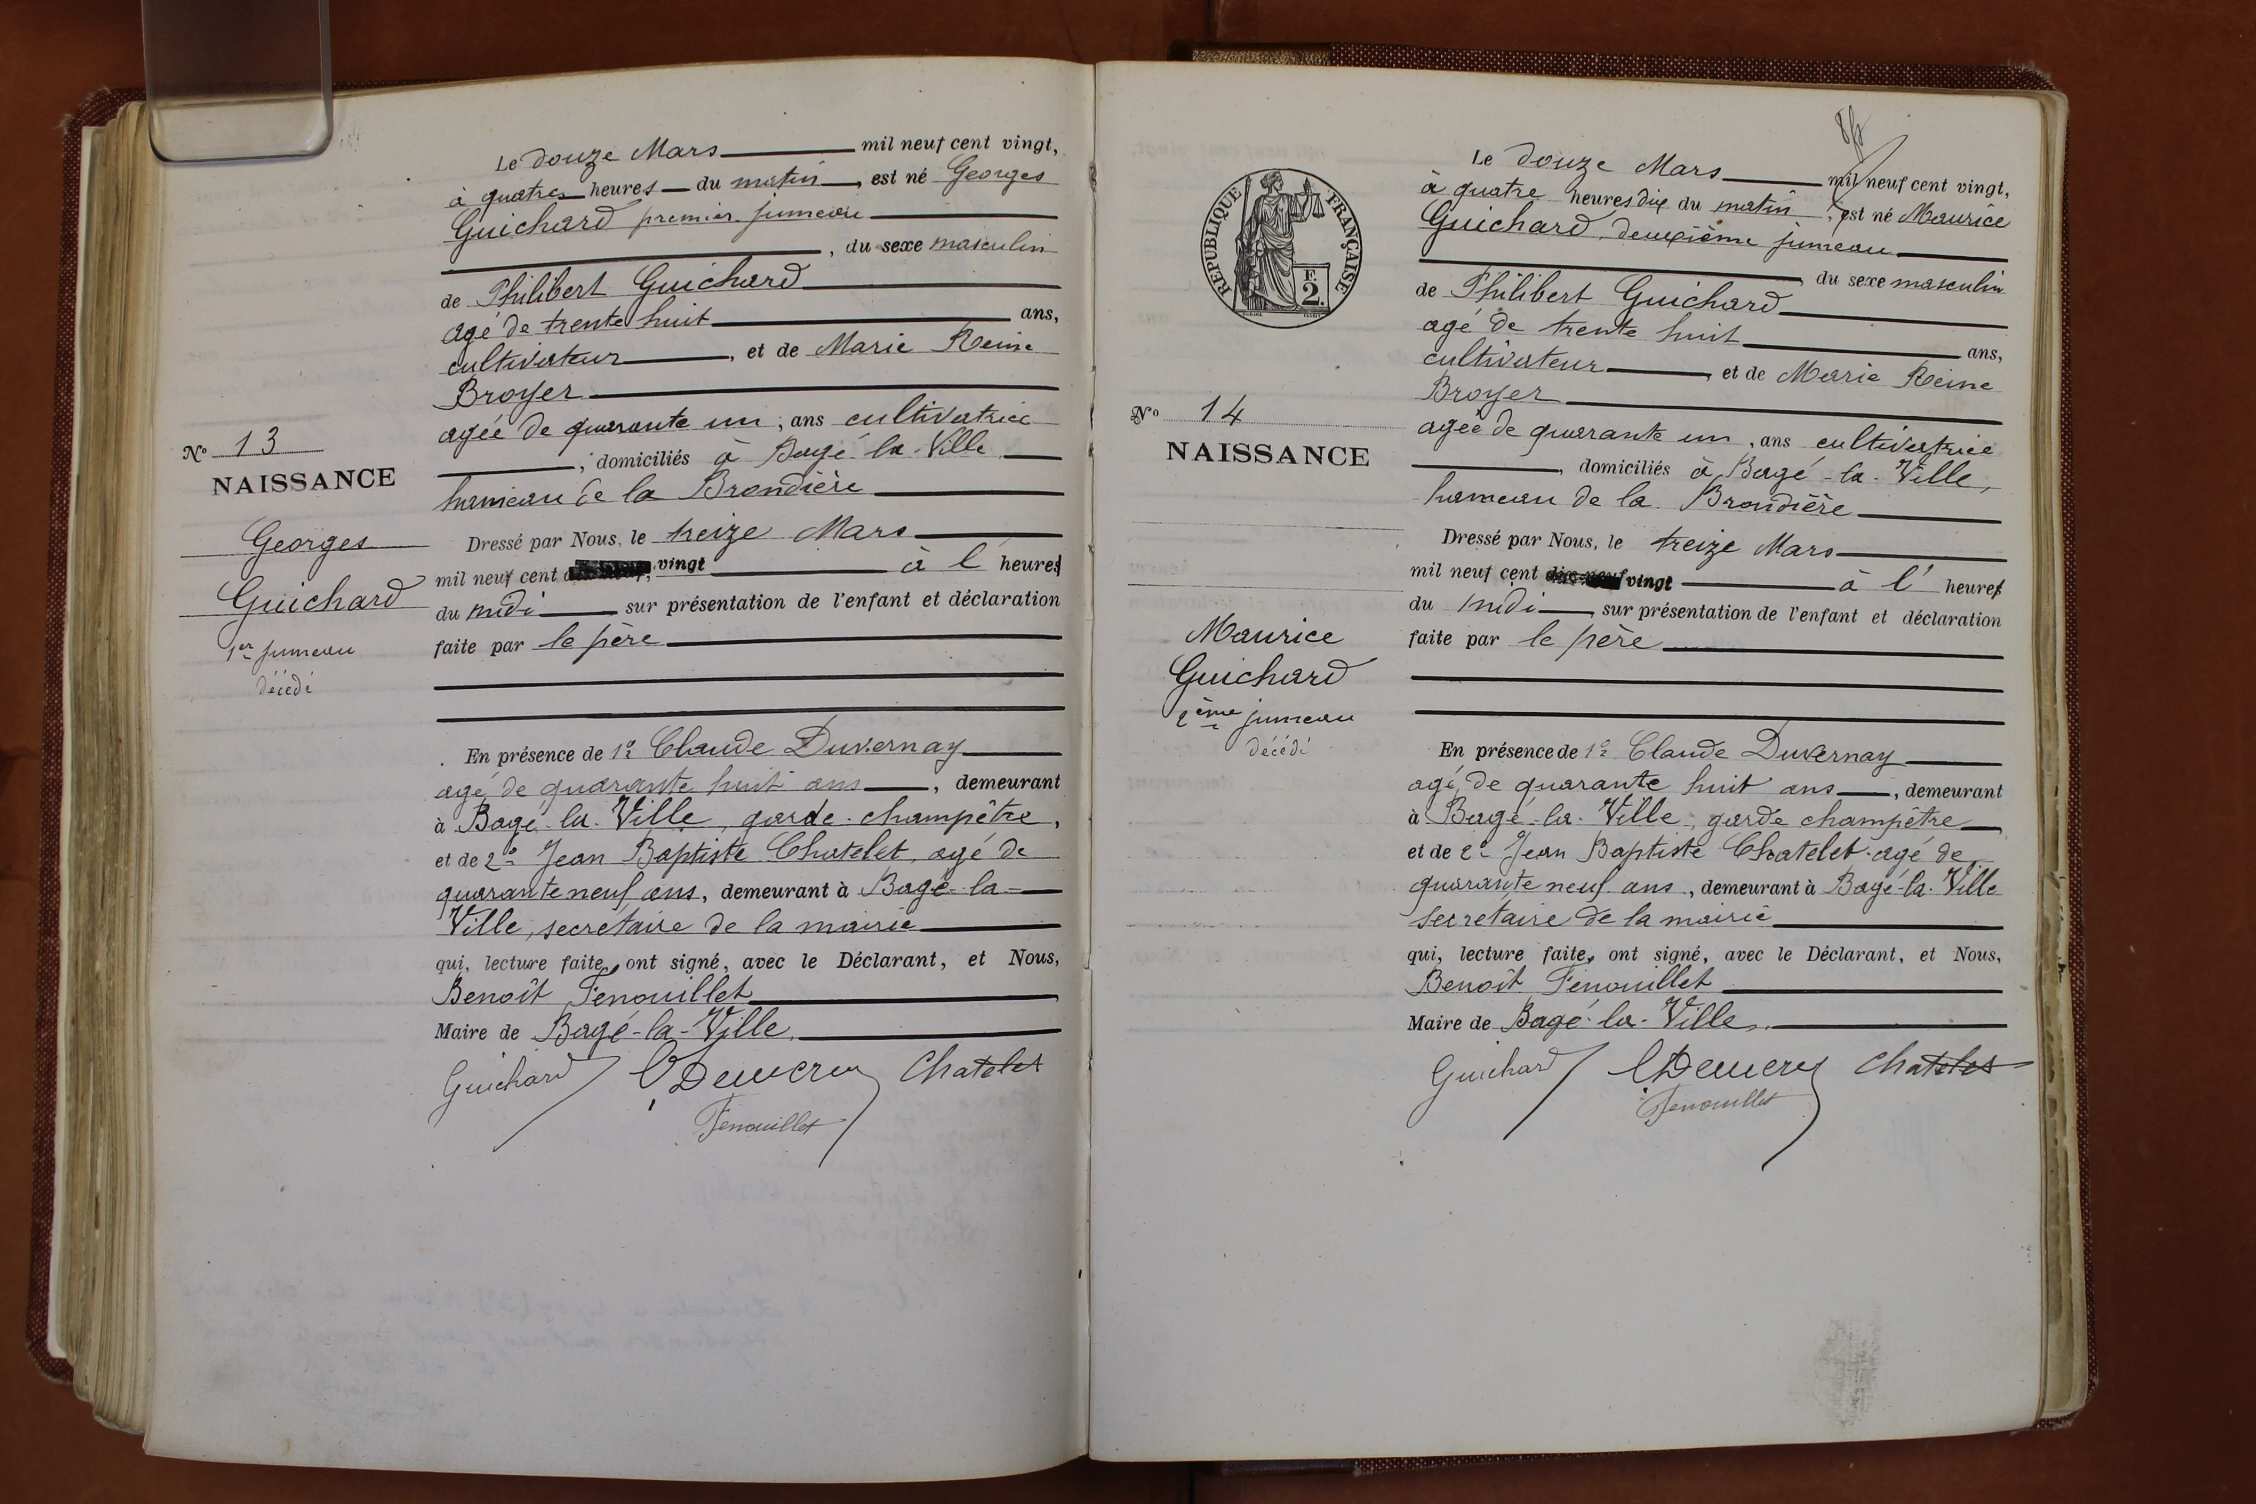 Le douze Mars mil neuf cent vingt,
à quatre heures du matin, est né Georges
Guichard premier jumeau
, du sexe masculin
de Philibert Guichard
agé de trente huit ans,
cultivateur, et de Marie Reine
Broyer
agée de quarante un, ans cultivatrice
, domiciliés à Bagé-la-Ville
hameau de la Brondière
Nº 13
NAISSANCE
Georges
Guichard
1er jumeau
décédé
Dressé par Nous, le treize Mars
mil neuf cent vingt à l' heures
du midi sur présentation de l'enfant et déclaration
faite par le père
En présence de 1º Claude Duvernay
agé de quarante huit ans, demeurant
à Bagé-la-Ville, garde-champêtre,
et de 2º Jean Baptiste Chatelet, agé de
quarante neuf ans, demeurant à Bagé-la-
Ville, secrétaire de la mairie
qui, lecture faite, ont signé, avec le Déclarant, et Nous,
Benoît Fenouillet
Maire de Bagé-la-Ville.
Guichard Chatelet
Fenouillet
RÉPUBLIQUE FRANÇAISE
F.
2.
Le douze Mars mil neuf cent vingt,
à quatre heures dix du matin, est né Maurice
Guichard, deuxième jumeau
du sexe masculin
de Philibert Guichard
agé de trente huit ans,
cultivateur, et de Marie Reine
Broyer
agée de quarante un, ans cultivatrice
, domiciliés à Bagé-la-Ville,
hameau de la Brondière
Nº 14
NAISSANCE
Maurice
Guichard
2ème jumeau
décédé
Dressé par Nous, le treize Mars
mil neuf cent dix-neuf vingt à l' heures
du midi, sur présentation de l'enfant et déclaration
faite par le père
En présence de 1º Claude Duvernay
agé de quarante huit ans, demeurant
à Bagé-la-Ville, garde champêtre
et de 2º Jean Baptiste Chatelet agé de
quarante neuf ans, demeurant à Bagé-la-Ville
secrétaire de la mairie
qui, lecture faite, ont signé, avec le Déclarant, et Nous,
Benoît Fenouillet
Maire de Bagé-la-Ville.
Guichard Chatelet
Fenouillet